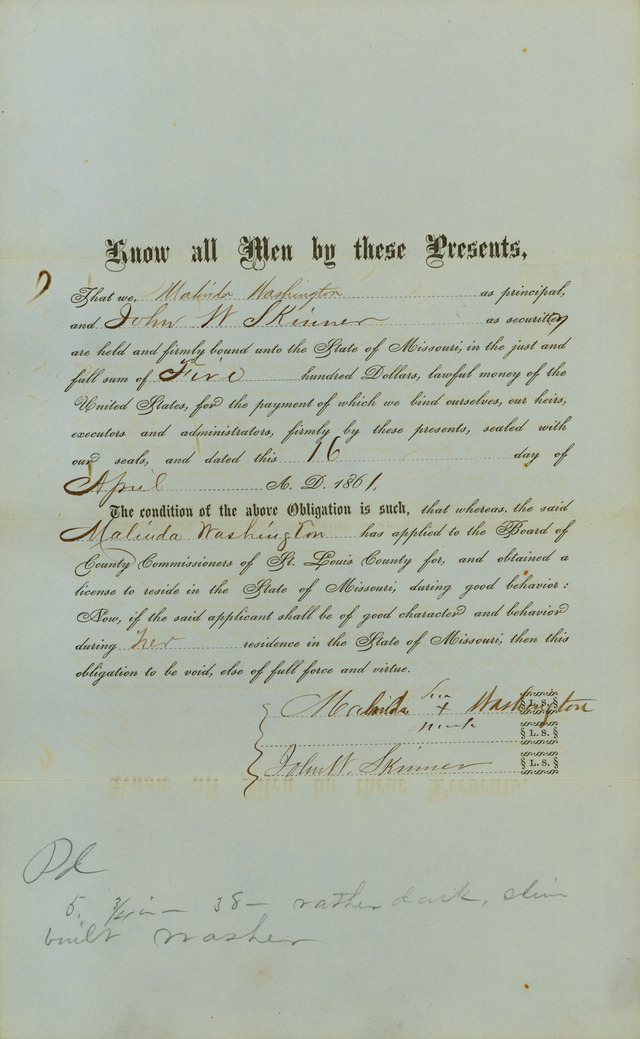 Know all Men by these Presents,
That we, Malinda Washington as principal,
and John W Skinner as security
are held and firmly bound unto the State of Missouri, in the just and
full sum of Five hundred Dollars, lawful money of the
United States, for the payment of which we bind ourselves, our heirs,
executors and administrators, firmly by these presents, sealed with
our seals, and dated this 16 day of
April A. D. 1861.
The condition of the above Obligation is such, that whereas the said
Malinda Washington has applied to the Board of
County Commissioners of St. Louis County for, and obtained a
license to reside in the State of Missouri, during good behavior:
Now, if the said applicant shall be of good character and behavior
during her residence in the State of Missouri, then this
obligation to be void, else of full force and virtue.
her
Malinda + Washington L. S.
mark
L. S.
John W. Skinner L. S.
Pd
5. 3/4 in — 38 — rather dark, slim
built washer